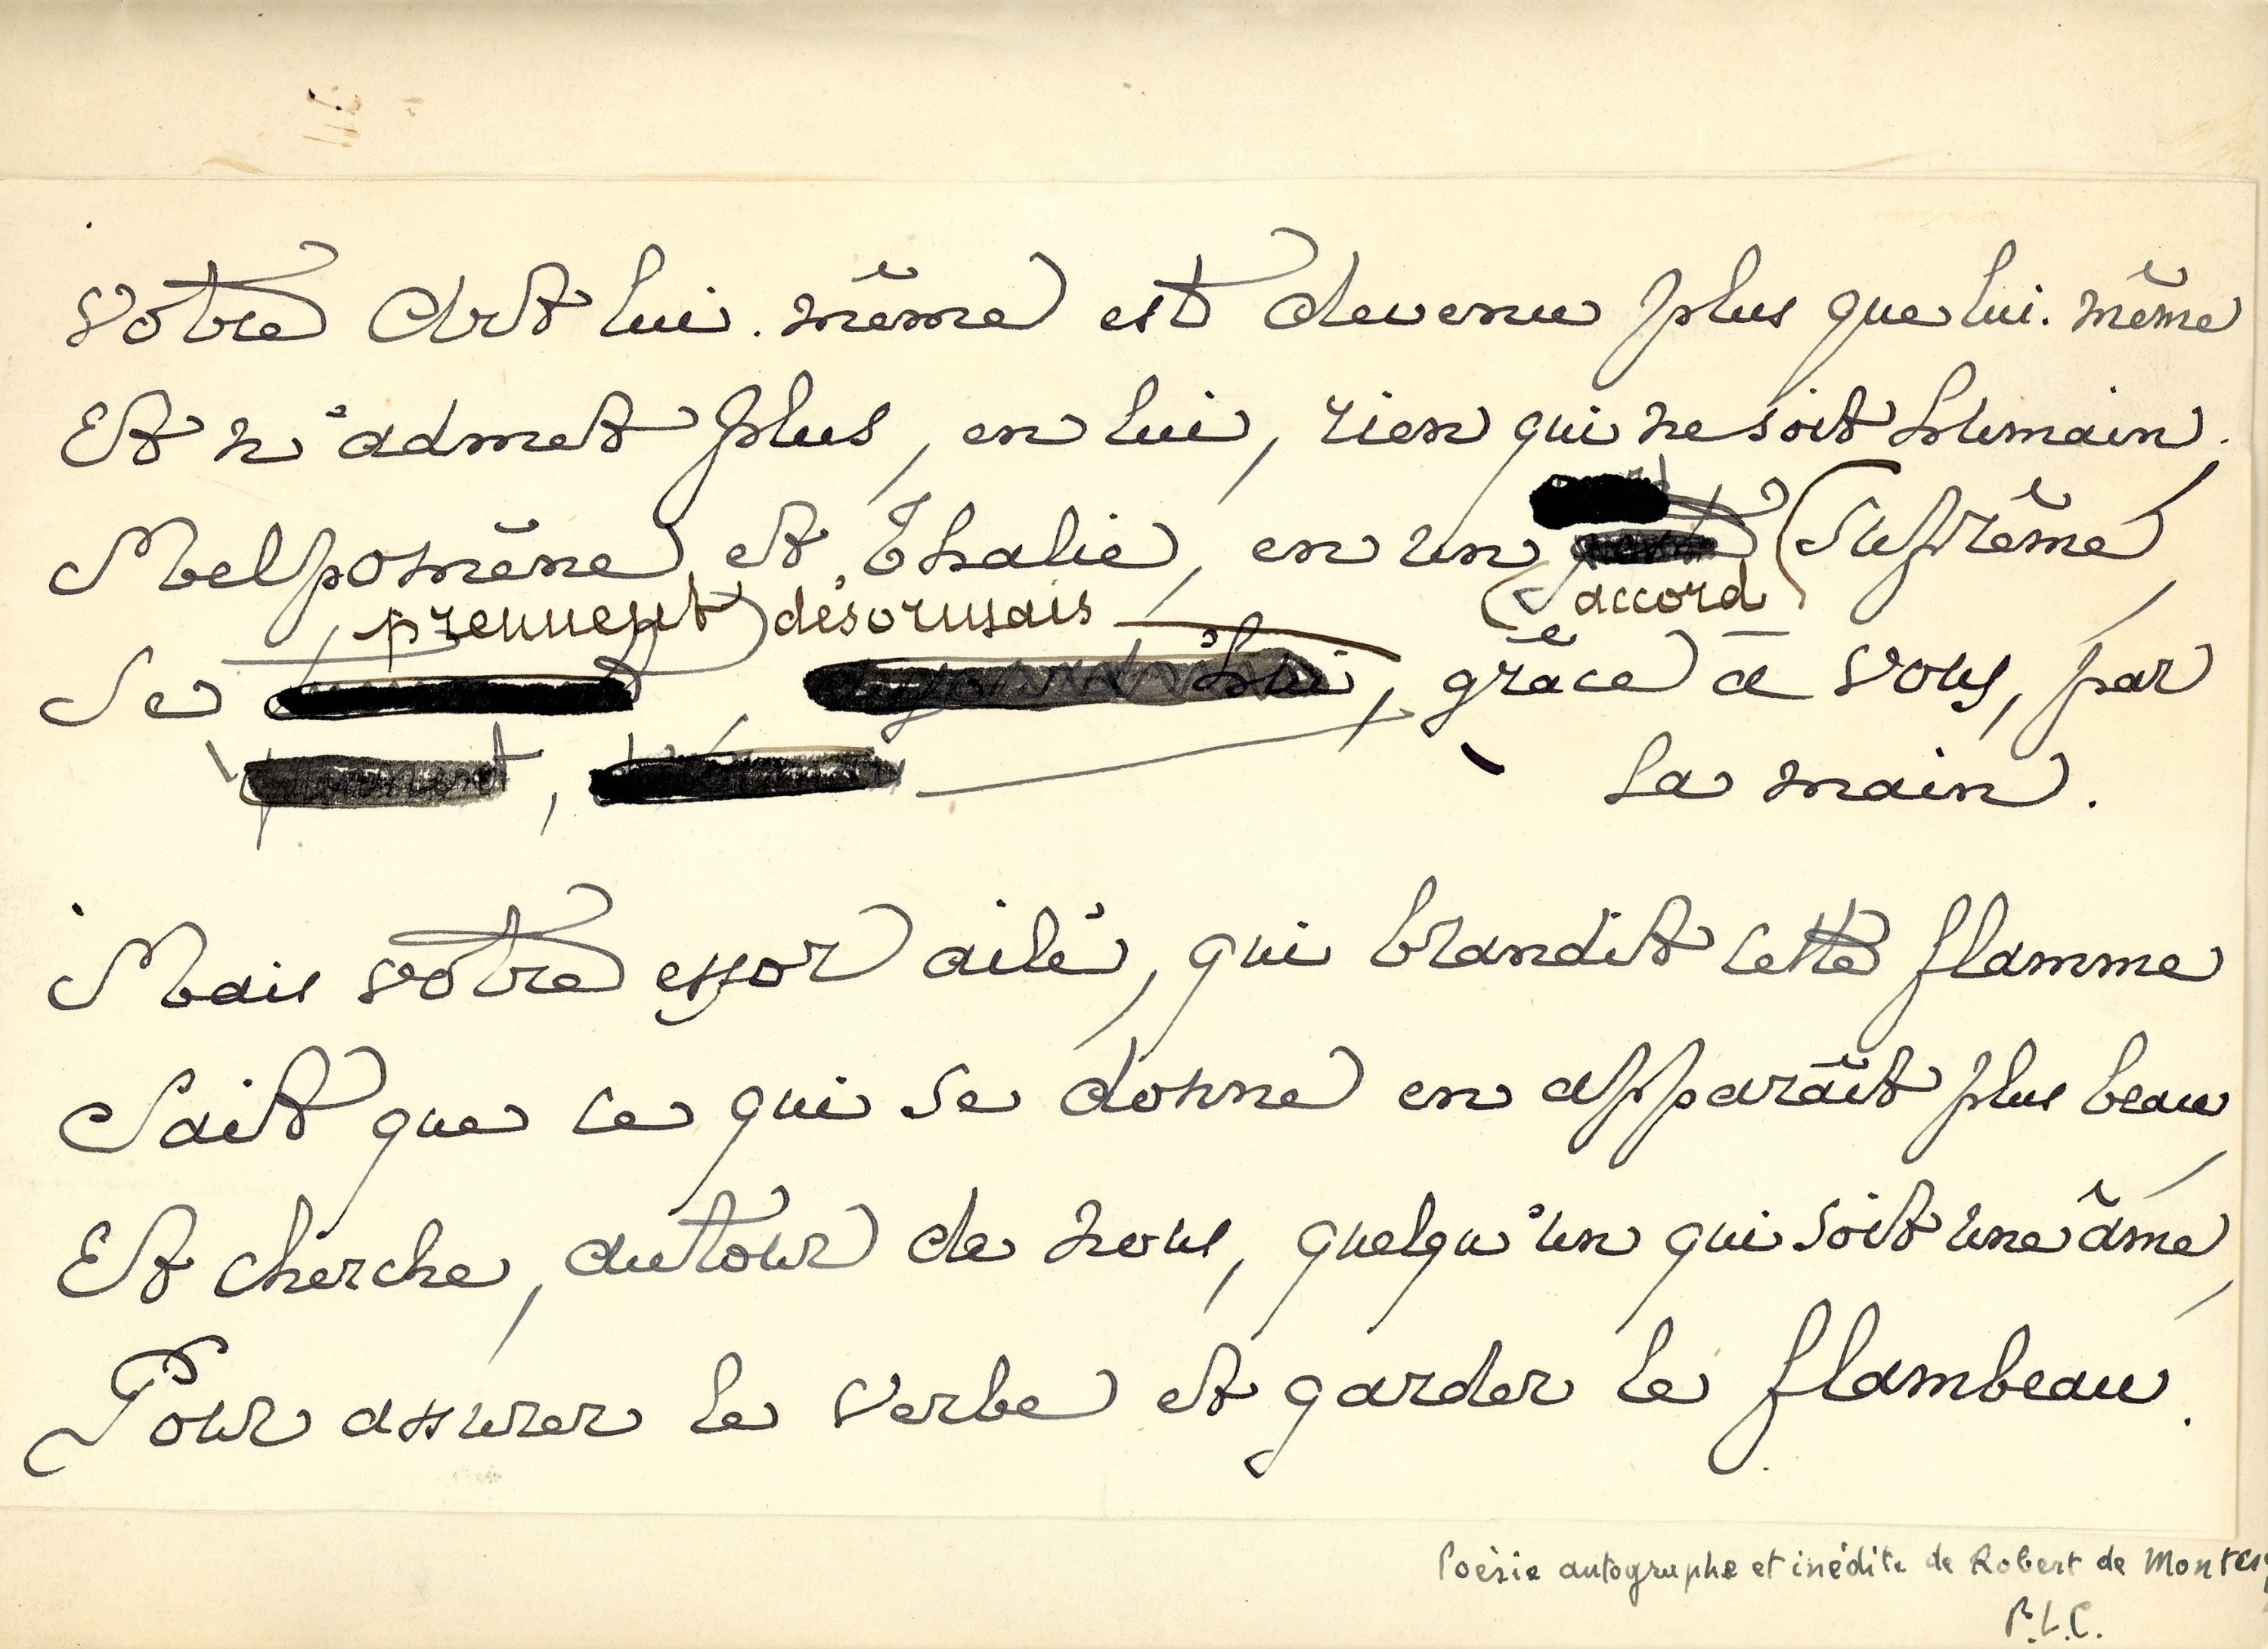 Votre Art lui-même est devenu plus que lui-même
Et n'admet plus, en lui, rien qui ne soit humain.
Melpomène et Thalie, en un suprême
accord
prennent désormais
Se , grâce à vous, par
la main.
Mais votre essor ailé, qui brandit cette flamme
Sait que ce qui se donne en apparaît plus beau,
Et cherche, autour de nous, quelqu'un qui soit une âme,
Pour assurer le verbe et garder le flambeau.
Poésie autographe et inédite de Robert de Montes
P.L.C.